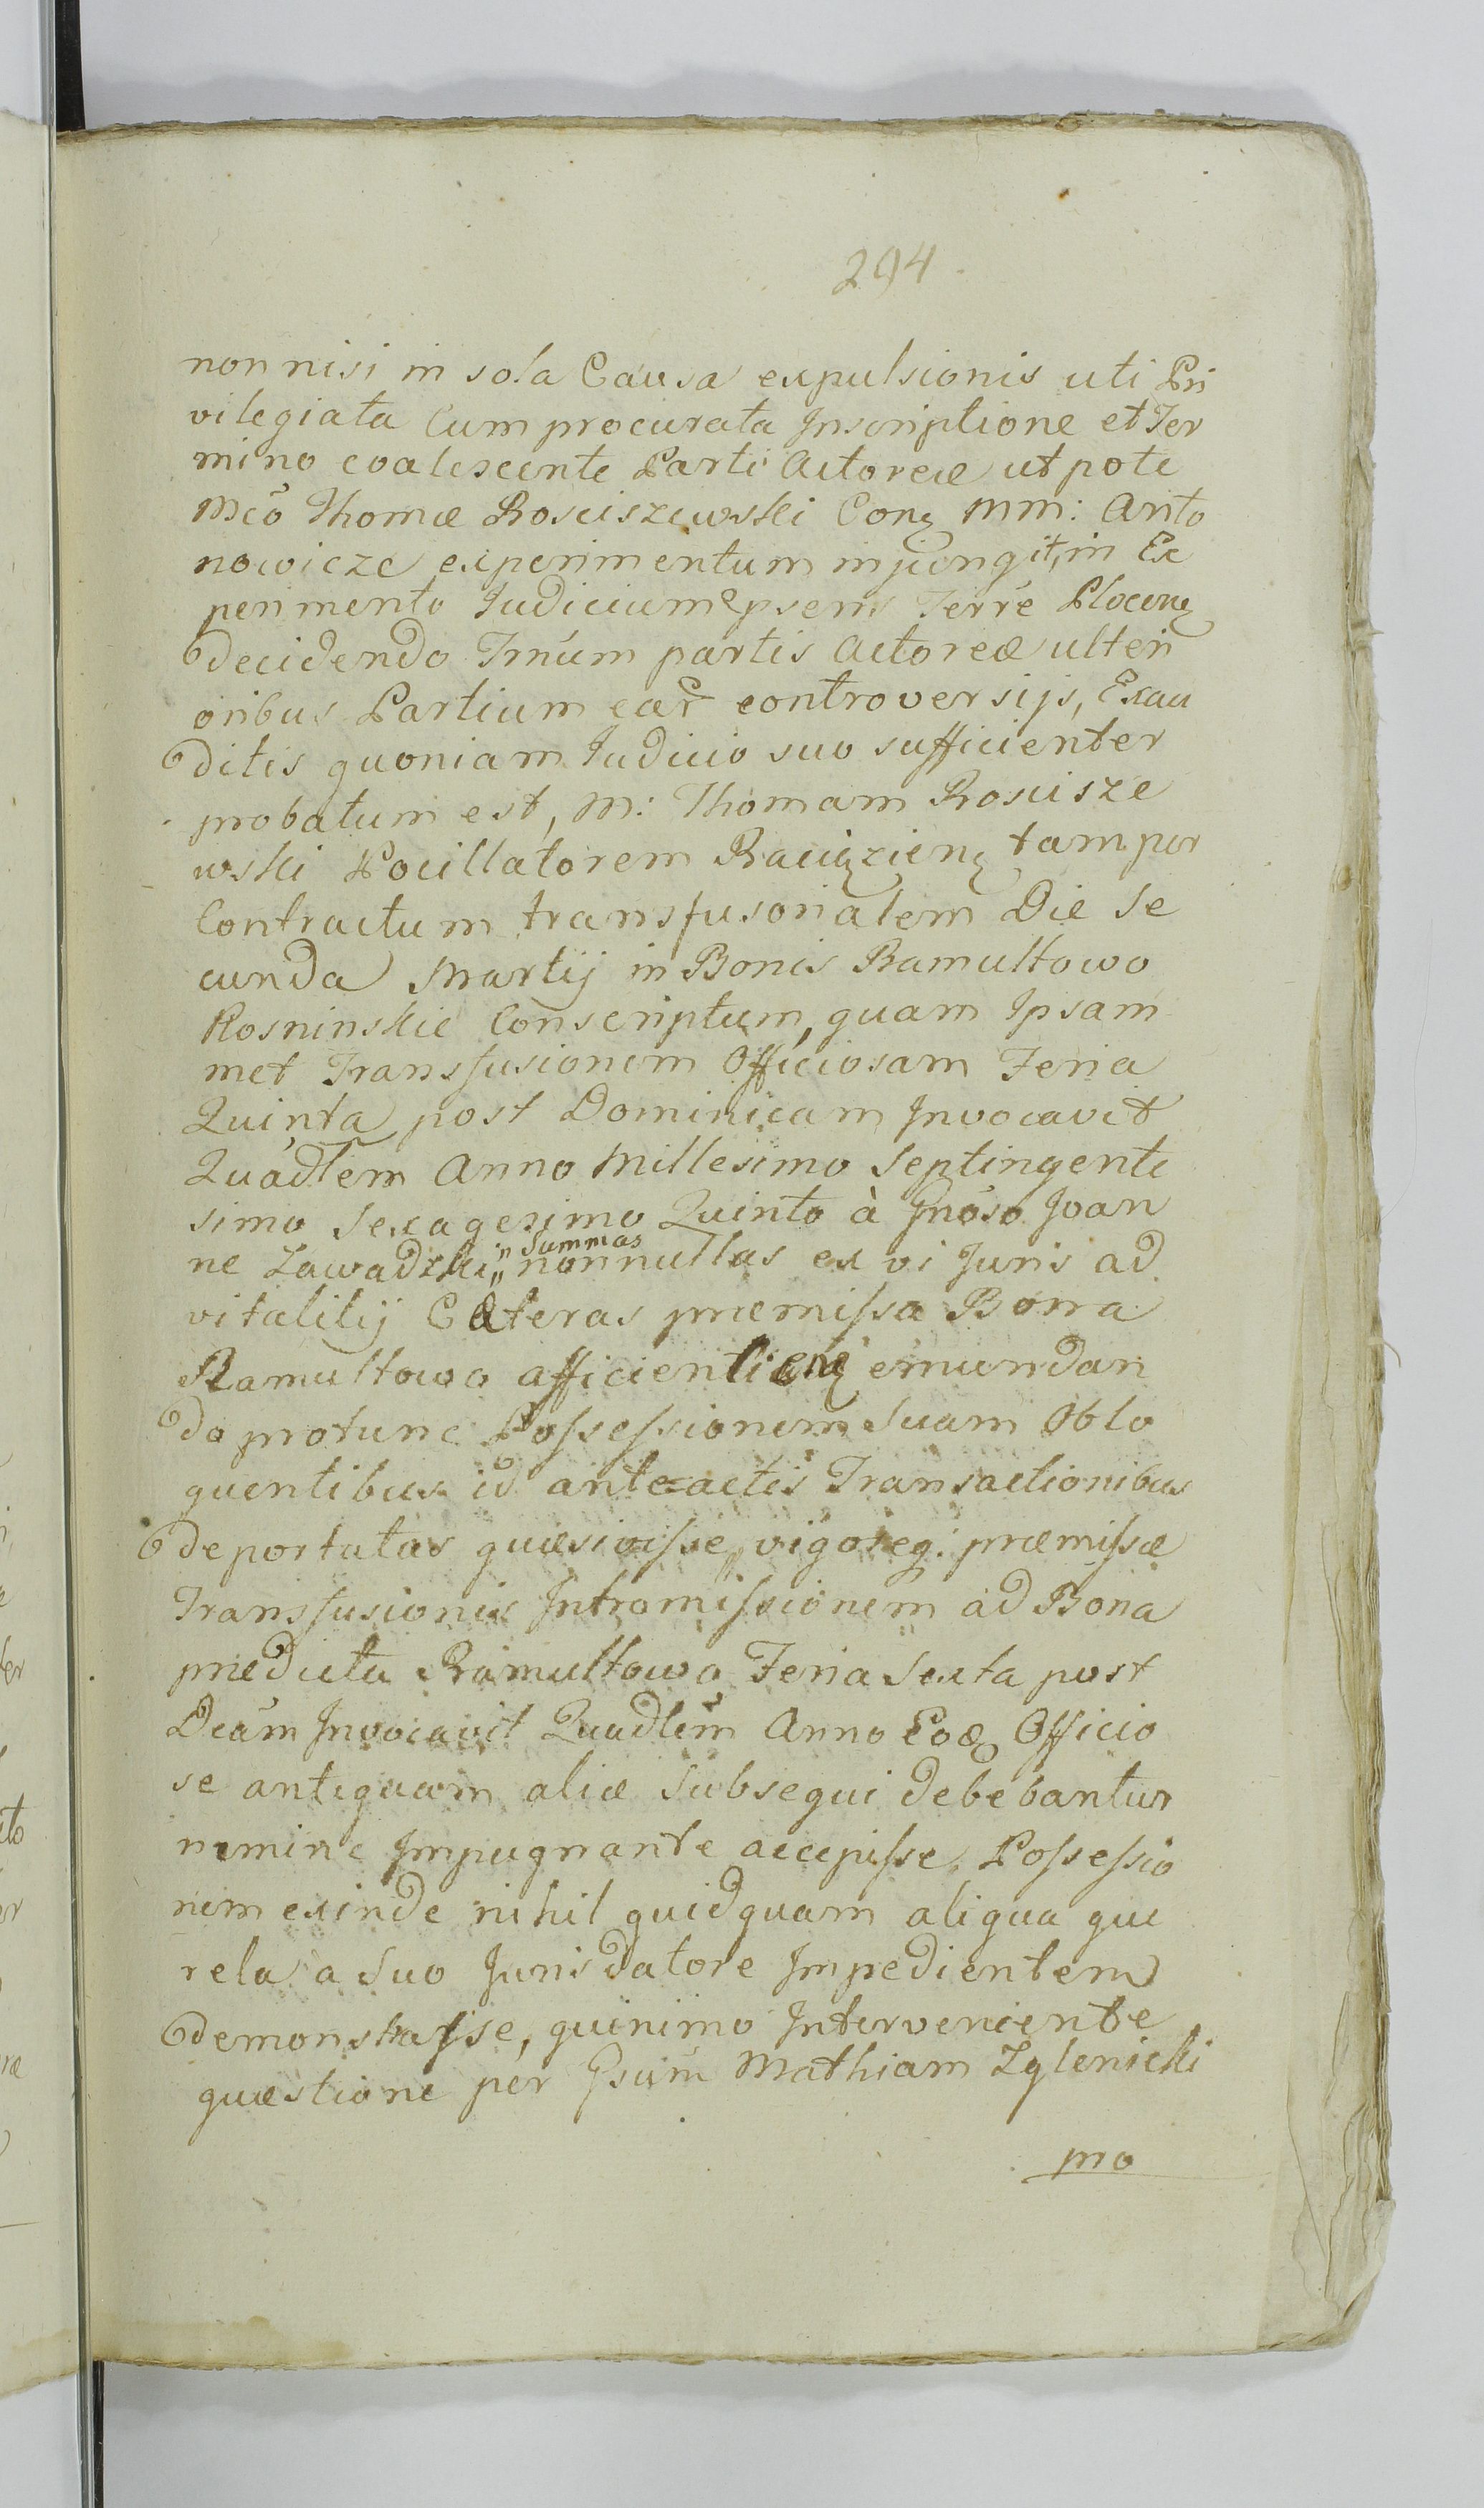 294
non nisi in sola Causa expulsionis uti Pri
vilegiata Cum procurata Inscriptione et Ter
mino coalescente Parti Actoreæ utpote
Mco Thomæ Rosciszewski Conę MM: Anto
nowicze experimentum injungit, in Ex
perimento Judicium psens Terre Plocenę
decidendo Tmum partis Actoreæ ulteri
oribus Partium ear controversijs, Exau
ditis quoniam Judicio suo sufficienter
probatum est, M: Thomam Roscisze
wski Pocillatorem Raciązienę tam per
Contractum transfusorialem Die Se
cunda Martij in Bonis Ramultowo
Rosninskie Conscriptum, quam Ipsam
met Transfusionem Officiosam Feria
Quinta post Dominicam Invocavit
Quadlem Anno Millesimo Septingente
simo Sexagesimo Quinto à Gnoso Joan
in Summas
ne Zawadzki „ nonnullas ex vi Juris ad
vitalitij Cæteras præmissa Bona
Ramultowo afficientię emundan
do protunc Possessionem Suam Oblo
quentibus id ante=actis Transactionibus
deportatas quæsivisse, vigoreq: præmissæ
Transfusionis Intromissionem ad Bona
prædicta Ramultowo Feria Sexta post
Dcam Invocavit Quadlem Anno Eoď Officio
se antequam aliæ subsequi debebantur
nemine Impugnante accepisse, Possessio
nem exinde nihil quidquam aliqua que
rela a Suo Jurisdatore Impedientem
demonstrasse, quinimo Interveniente
quæstione per Gsum Mathiam Zglenicki
pro